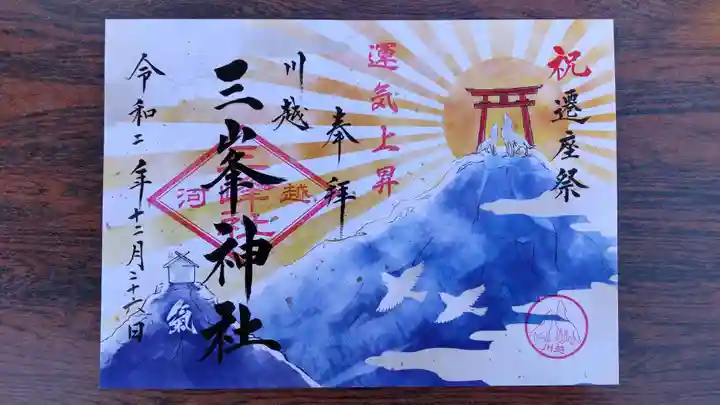 祝 遷座祭
運気上昇
奉拝
川越
三峯神社
河越
三峯社
令和二年十二月二十六日
氣
川越